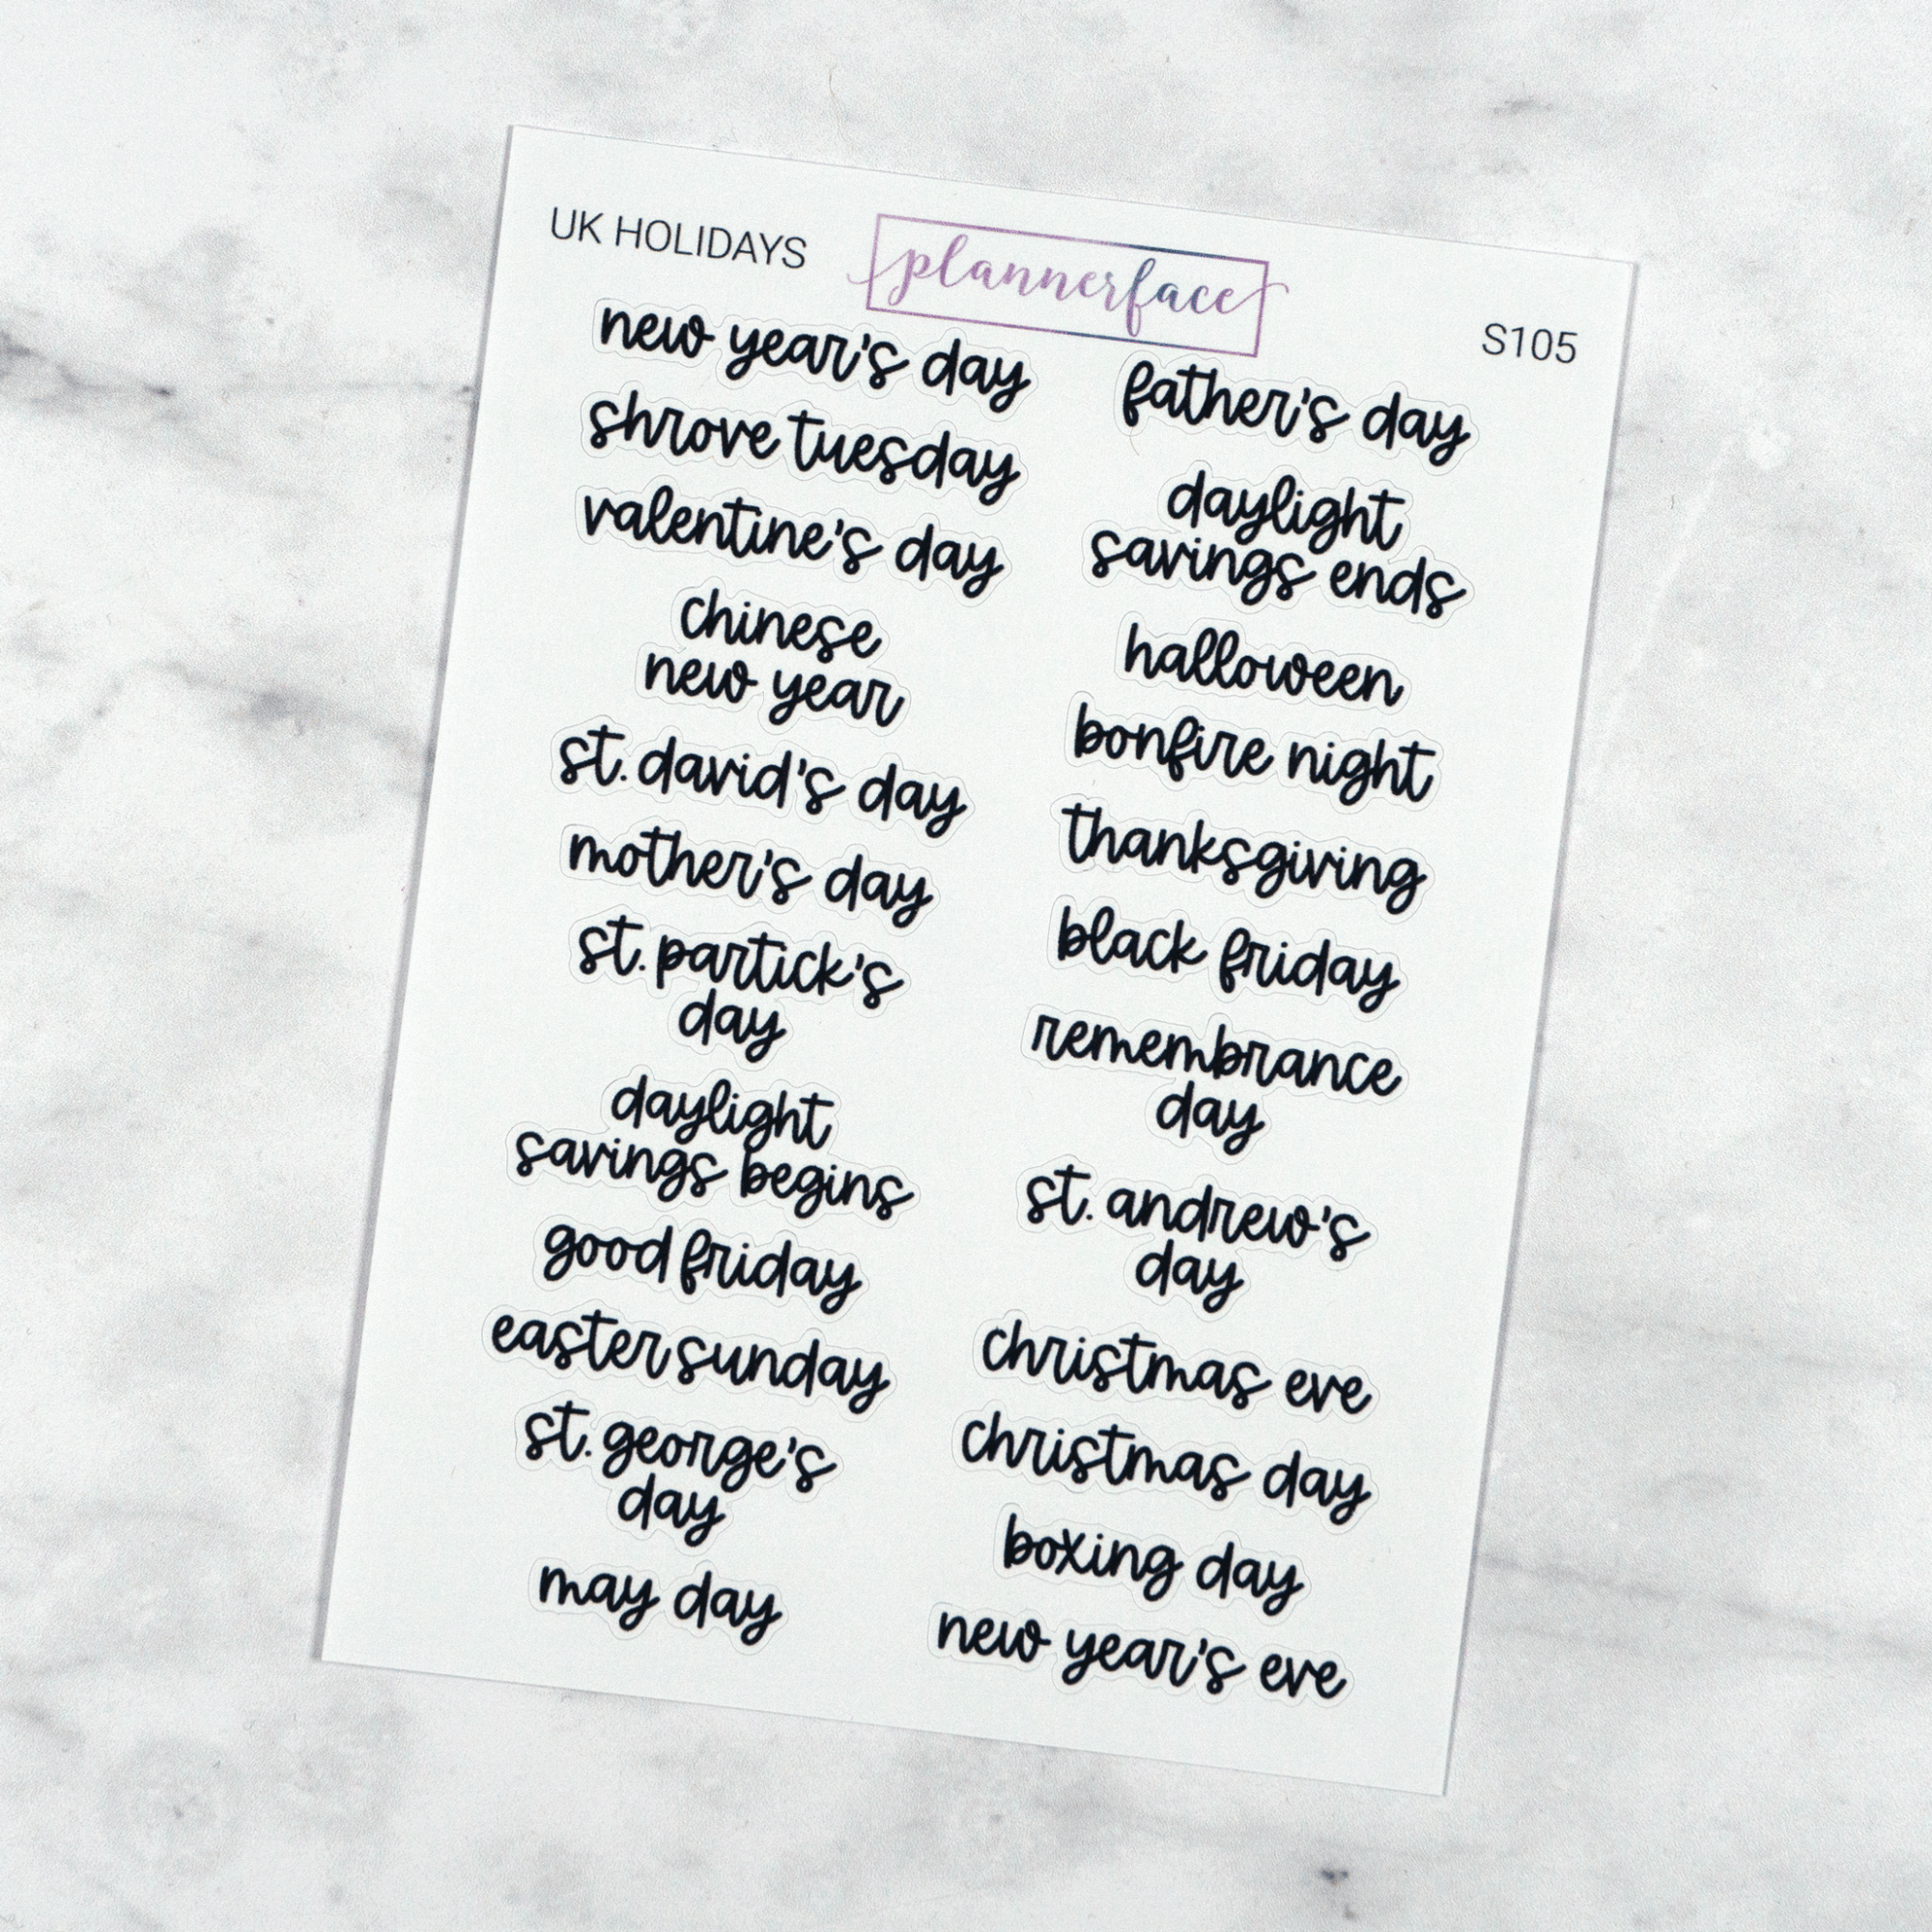 UK HOLIDAYS
plannerface
S105
new year's day
shrove tuesday
valentine's day
chinese
new year
st. david's day
mother's day
st. partick's
day
daylight
savings begins
good friday
easter sunday
st. george's
day
may day
father's day
daylight
savings ends
halloween
bonfire night
thanksgiving
black friday
remembrance
day
st. andrew's
day
christmas eve
christmas day
boxing day
new year's eve